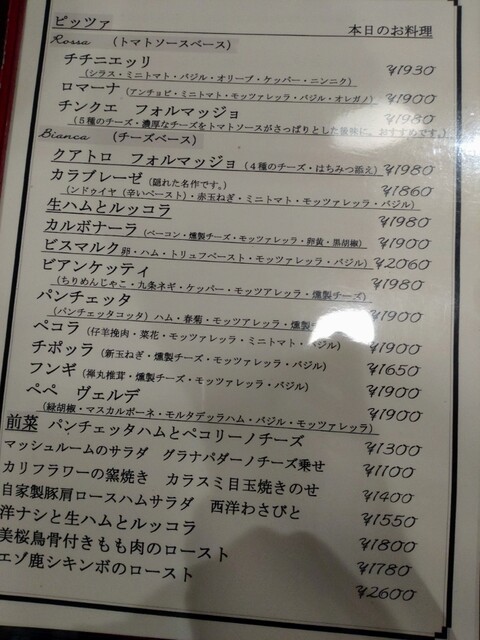 ピッツァ 本日のお料理
Rossa (トマトソースベース)
チチニエッリ ¥1930
(シラス・ミニトマト・バジル・オリーブ・ケッパー・ニンニク)
ロマーナ (アンチョビ・ミニトマト・モッツァレッラ・バジル・オレガノ) ¥1900
チンクエ フォルマッジョ ¥1980
(5種のチーズ・濃厚なチーズをトマトソースがさっぱりとした後味に。おすすめです。)
Bianca (チーズベース)
クアトロ フォルマッジョ (4種のチーズ・はちみつ添え) ¥1980
カラブレーゼ (隠れた名作です。) ¥1860
(ンドゥイヤ (辛いペースト)・赤玉ねぎ・ミニトマト・モッツァレッラ・バジル)
生ハムとルッコラ ¥1980
カルボナーラ (ベーコン・燻製チーズ・モッツァレッラ・卵黄・黒胡椒) ¥1900
ビスマルク 卵・ハム・トリュフペースト・モッツァレッラ・バジル) ¥2060
ビアンケッティ ¥1980
(ちりめんじゃこ・九条ネギ・ケッパー・モッツアレッラ・燻製チーズ)
パンチェッタ ¥1900
(パンチェッタコッタ) ハム・春菊・モッツァレッラ・燻製
ペコラ (仔羊挽肉・菜花・モッツァレッラ・ミニトマト・バジル) ¥1900
チポッラ (新玉ねぎ・燻製チーズ・モッツァレッラ・バジル) ¥1650
フンギ (禅丸椎茸・燻製チーズ・モッツァレッラ・バジル) ¥1900
ペペ ヴェルデ ¥1900
(緑胡椒・マスカルポーネ・モルタデッラハム・バジル・モッツァレッラ)
前菜 パンチェッタハムとペコリーノチーズ ¥1300
マッシュルームのサラダ グラナパダーノチーズ乗せ ¥1100
カリフラワーの窯焼き カラスミ目玉焼きのせ ¥1400
自家製豚肩ロースハムサラダ 西洋わさびと ¥1550
洋ナシと生ハムとルッコラ ¥1800
美桜鳥骨付きもも肉のロースト ¥1780
エゾ鹿シキンボのロースト ¥2600